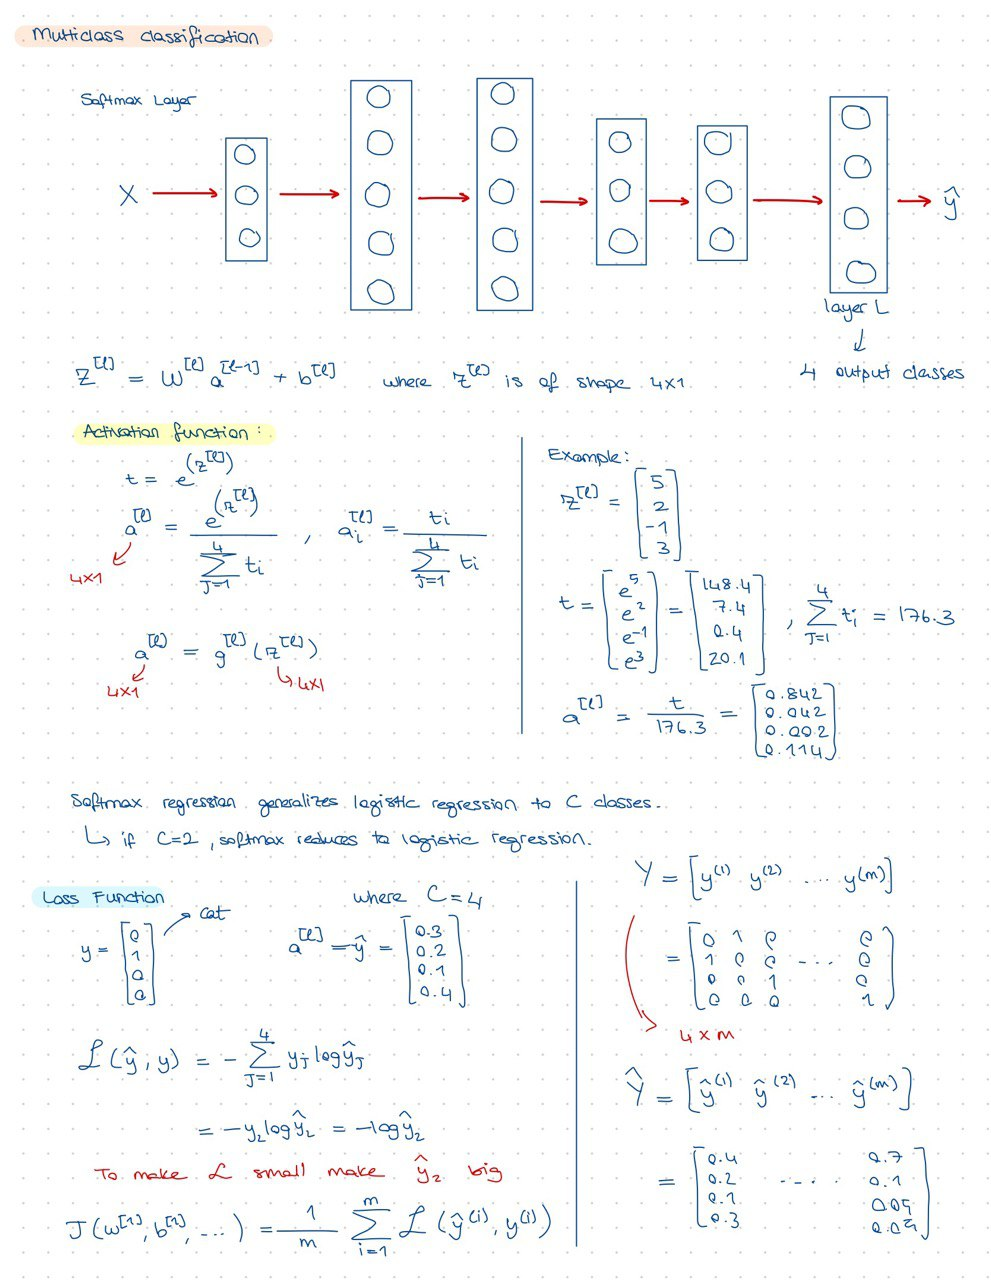 Multiclass classification
Softmax Layer
X
ŷ
layer L
4 output classes
z^[l] = W^[l] a^[l-1] + b^[l] where z^[l] is of shape 4x1
Activation function:
t = e^(z^[l])
a^[l] = e^(z^[l]) / ∑_{J=1}^{4} t_i , a_i^[l] = t_i / ∑_{J=1}^{4} t_i
4x1
a^[l] = g^[l](z^[l])
4x1 4x1
Example:
z^[l] = [5 2 -1 3]
t = [e^5 e^2 e^-1 e^3] = [148.4 7.4 0.4 20.1] , ∑_{J=1}^{4} t_i = 176.3
a^[l] = t / 176.3 = [0.842 0.042 0.002 0.114]
Softmax regression generalizes logistic regression to C classes.
↳ if C=2, softmax reduces to logistic regression.
Loss Function where C=4
y = [0 1 0 0] cat
a^[l] = ŷ = [0.3 0.2 0.1 0.4]
ℒ(ŷ, y) = - ∑_{J=1}^{4} y_j log ŷ_J
= -y_2 log ŷ_2 = -log ŷ_2
To make ℒ small make ŷ_2 big
J(w^[1], b^[1], ...) = 1/m ∑_{i=1}^{m} ℒ(ŷ^(i), y^(i))
Y = [y^(1) y^(2) ... y^(m)]
= [0 1 0 0
1 0 0 ... 0
0 0 1 0
0 0 0 1]
4 x m
Ŷ = [ŷ^(1) ŷ^(2) ... ŷ^(m)]
= [0.4 0.7
0.2 ..... 0.1
0.1
0.3]